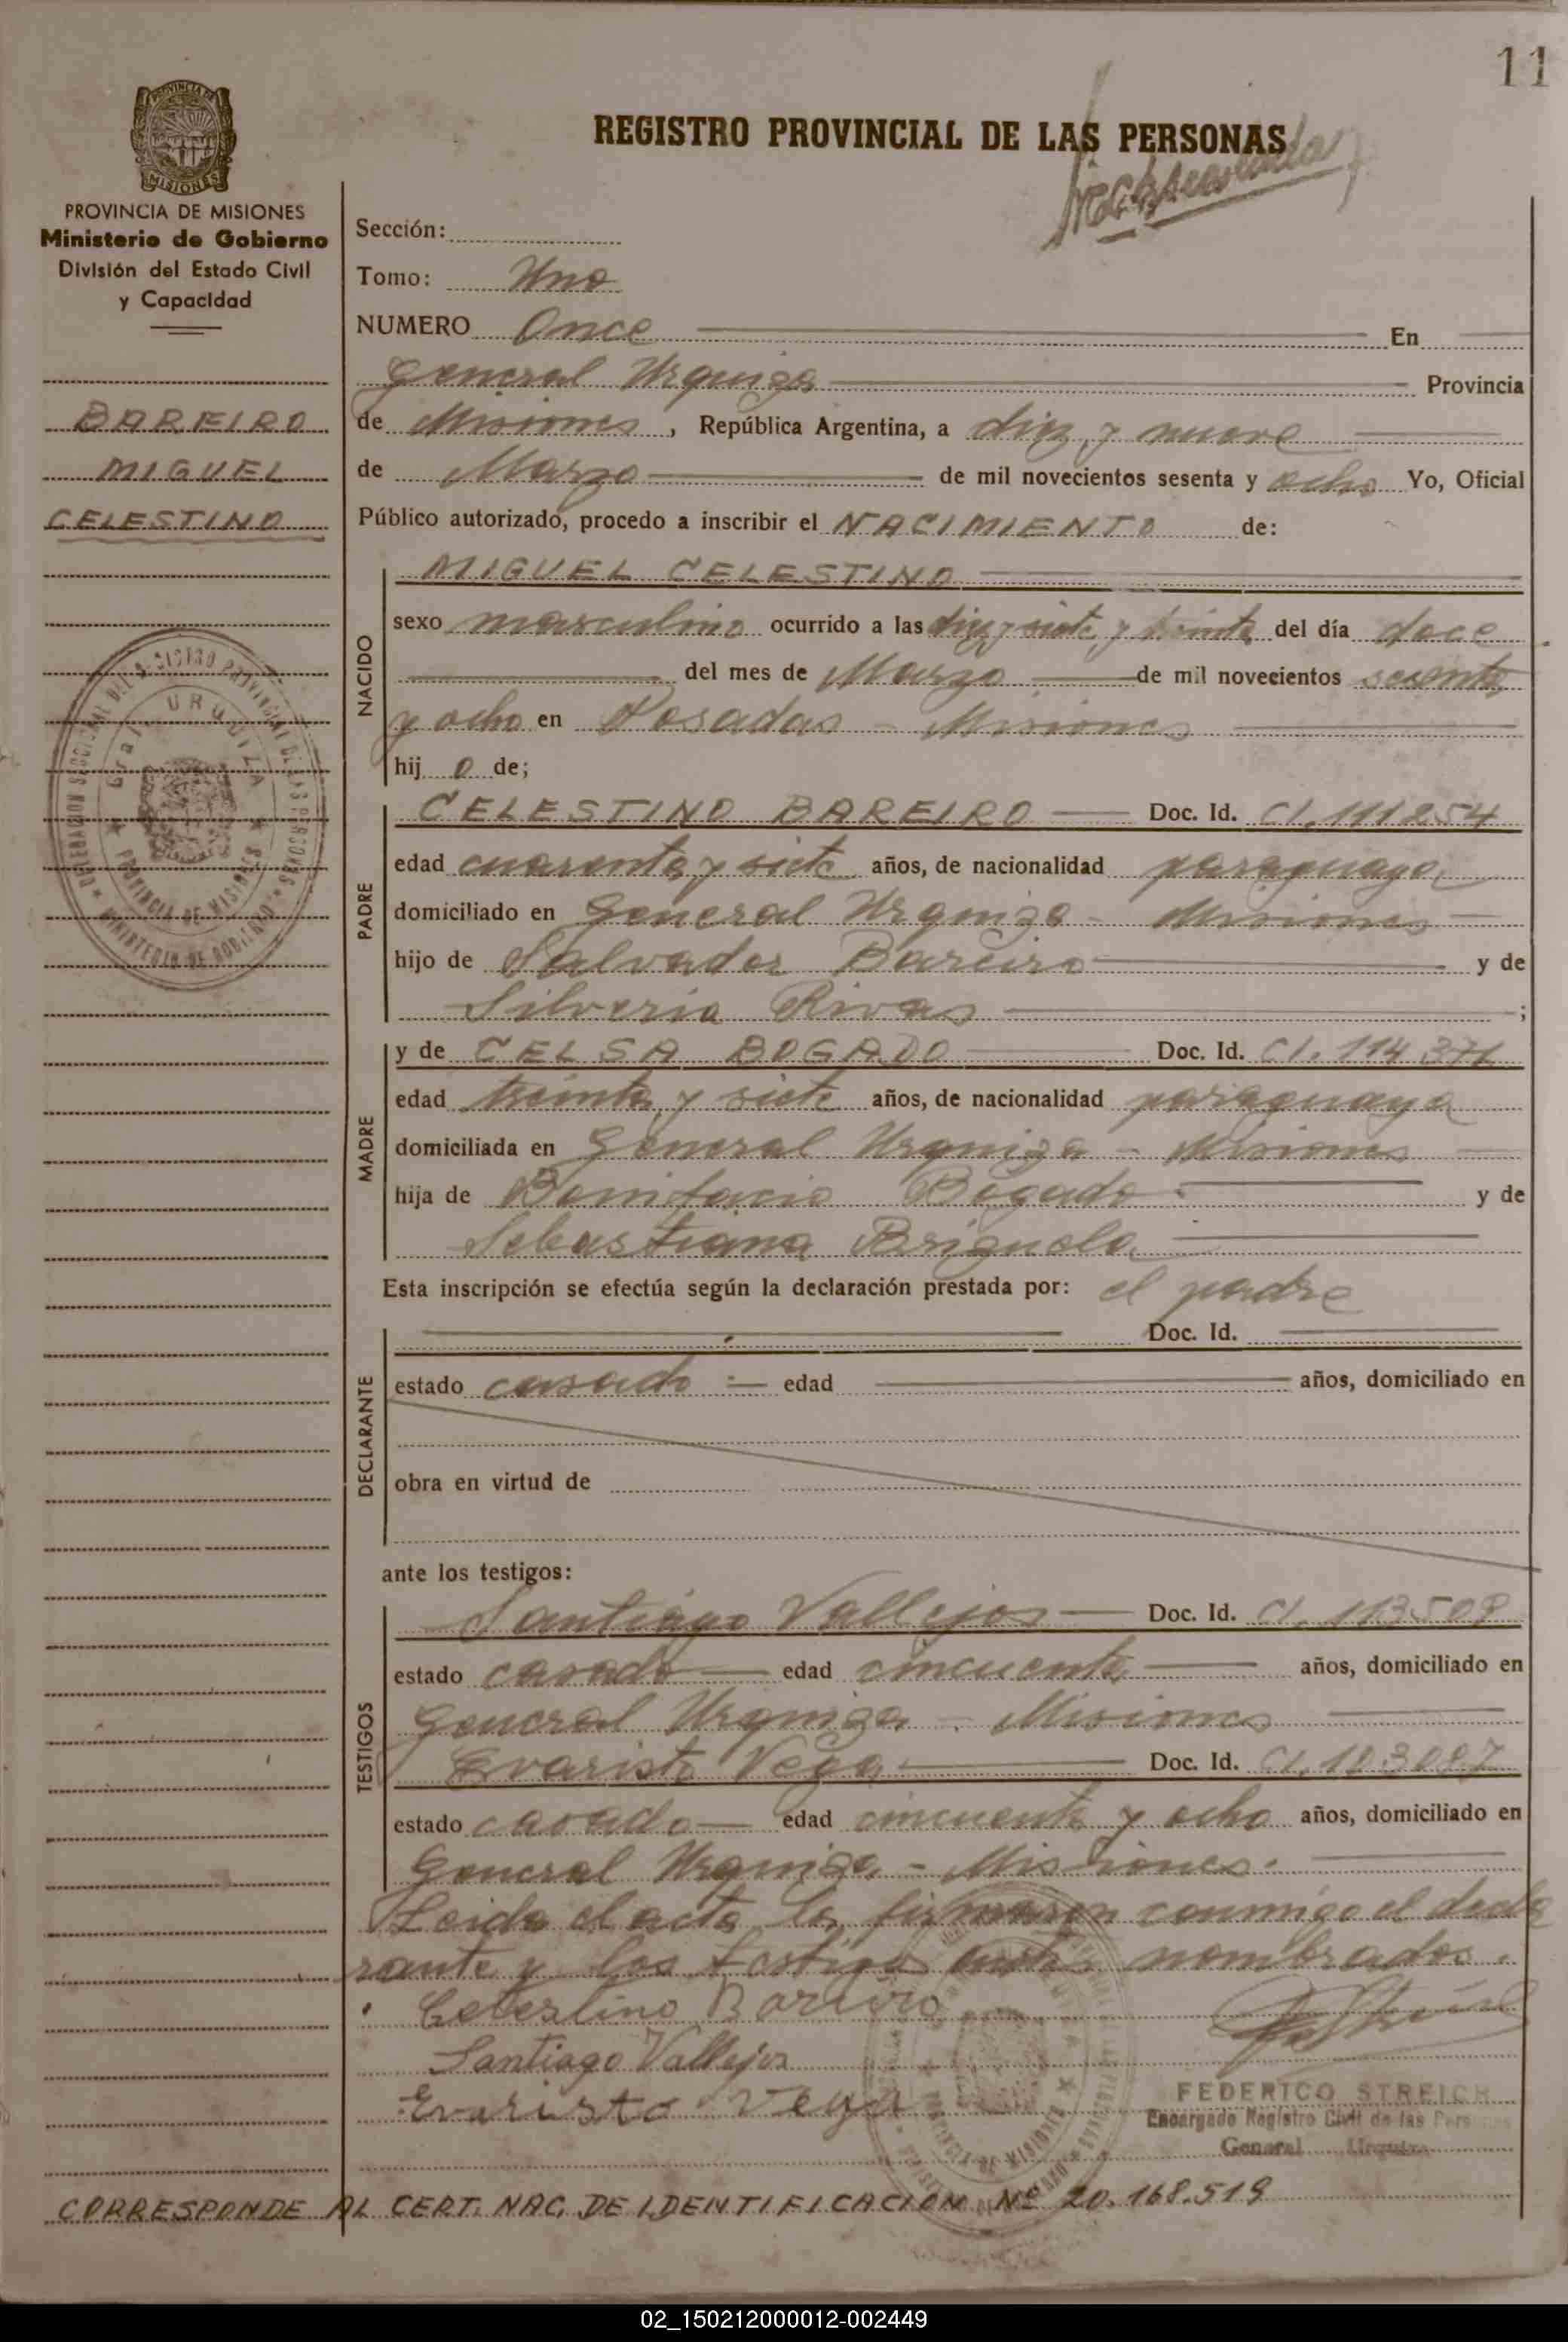 11
REGISTRO PROVINCIAL DE LAS PERSONAS
PROVINCIA DE MISIONES
Ministerio de Gobierno
División del Estado Civil
y Capacidad
BAREIRO
MIGUEL
CELESTINO
Sección:
Tomo: Uno
NUMERO Once En
General Urquiza Provincia
de Misiones, República Argentina, a diez y nueve
de Marzo de mil novecientos sesenta y ocho Yo, Oficial
Público autorizado, procedo a inscribir el NACIMIENTO de:
NACIDO
MIGUEL CELESTINO
sexo masculino ocurrido a las diez y siete y treinta del día doce
del mes de Marzo de mil novecientos sesenta
y ocho en Posadas - Misiones
hij o de;
PADRE
CELESTINO BAREIRO Doc. Id. CI. 111254
edad cuarenta y siete años, de nacionalidad paraguaya
domiciliado en General Urquiza - Misiones
hijo de Salvador Bareiro y de
Silveria Rivas ;
MADRE
y de CELSA BOGADO Doc. Id. CI. 114
edad treinta y siete años, de nacionalidad paraguaya
domiciliada en General Urquiza - Misiones
hija de Bonifacio Bogado y de
Sebastiana Brignola
Esta inscripción se efectúa según la declaración prestada por: el padre
DECLARANTE
Doc. Id.
estado casado edad años, domiciliado en
obra en virtud de
ante los testigos:
TESTIGOS
Santiago Vallejos Doc. Id. CI. 113508
estado casado edad cincuenta años, domiciliado en
General Urquiza - Misiones
Evaristo Vega Doc. Id. CI. 103087
estado casado edad cincuenta y ocho años, domiciliado en
General Urquiza - Misiones.
Leida el acta la firmaron conmigo el decla
rante y los testigos antes nombrados.
Celestino Bareiro
Santiago Vallejos
Evaristo Vega
FEDERICO STREICH
Encargado Registro Civil de las Personas
General Urquiza
CORRESPONDE AL CERT. NAC. DE IDENTIFICACION Nº 20.168.519
02_150212000012-002449